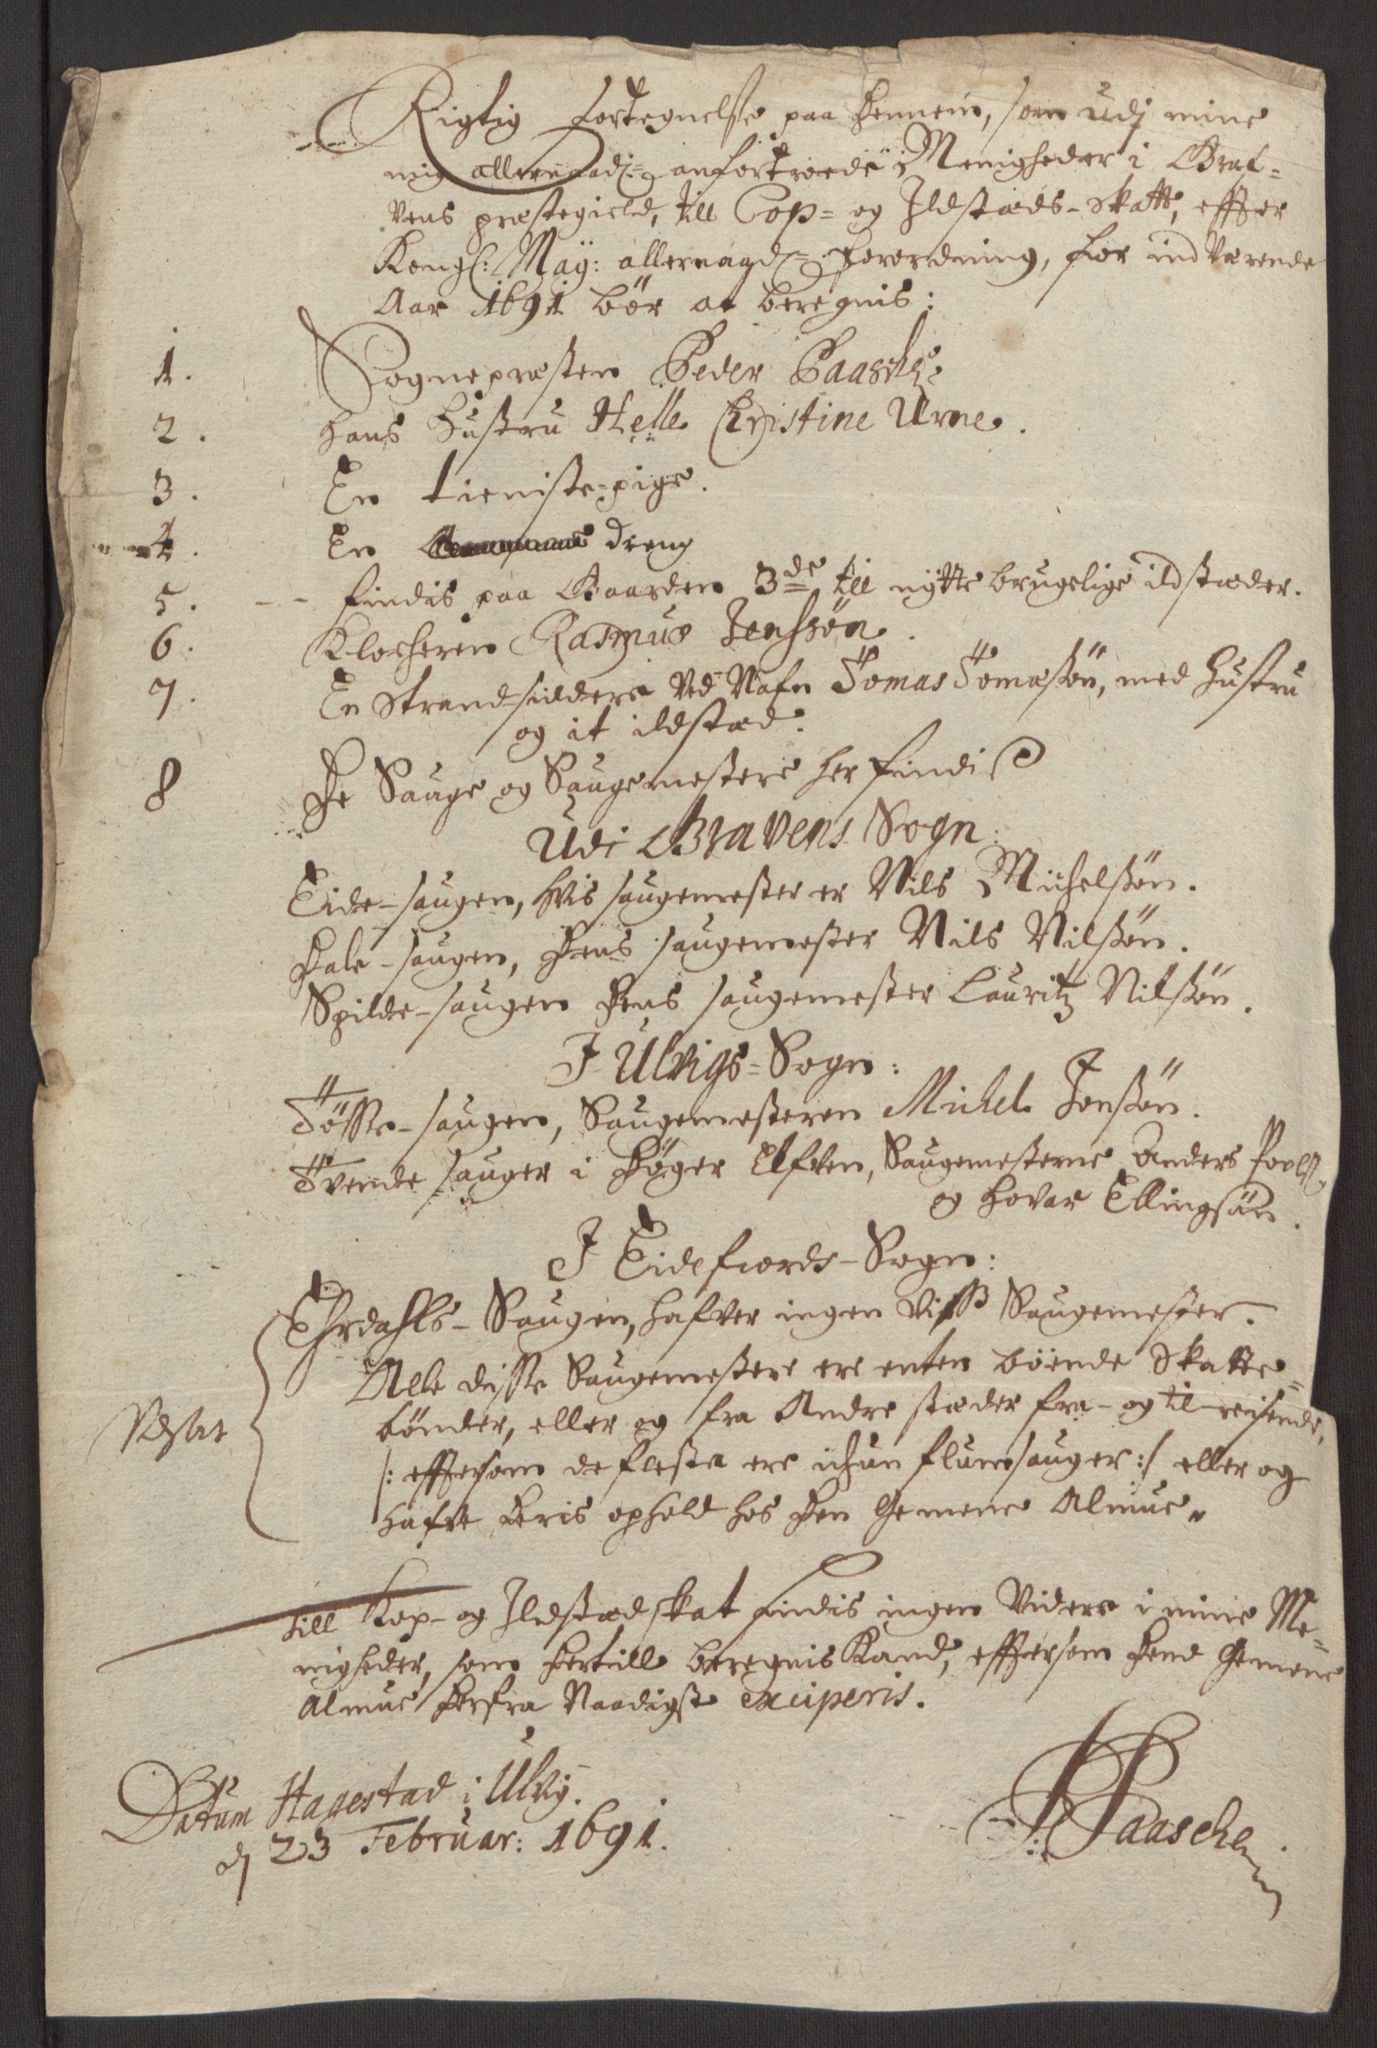 Rigtig fortegnelse paa dennem, som udj mine
mig allernaad: anfortroede Menigheder i Gra=
vens præstegield, till Cop= og Ildstæds-skatt, effter
Kongl: May: allernagd: forordning, for indværende
Aar 1691 bör at beregnis:
1. Sognepræsten Peder Paasche
2. hans hustru Helle Christine Urne.
3. En tieniste-pige.
4. En dreng
5. findis paa Gaarden 3de till nytte brugelige ildstæder.
6. Klocheren Rasmus Jenssön.
7. En Strandsidder ved Nafn Tomas Tomassön, med hustru
og it ildstæd.
8 De Sauge og Saugemestere her findis
Udi Gravens Sogn:
Eide-saugen, hvis saugemester er Nils Michelssön.
Dale-saugen, dens saugemester Nils Nilssön.
Spilde-saugen dens saugemester Lauritz Nilssön.
I Ulvigs=Sogn:
Tösse-saugen, Saugemesteren Michel Jonssön.
Tvende sauger i Döger Elfven, Saugemesterne Anders Povls:
og Hovar Ellingsön.
I Eidefiords-Sogn:
Ehrdahls-Saugen, hafver ingen viss Saugemester.
Alle disse Saugemestere ere enten böende Skatte=
bönder, eller og fra Andre stæder fra- og til-reisende,
/: effersom de fleste ere ichun flumsauger:/ eller og
hafve deris ophold hos den Gemene Almue
till Kop- og Ildstædskat findis ingen videre i mine Me=
nigheder, som hertill beregnis kand, effersom dend Gemene
Almue derfra Naadigst exciperis.
Datum Hagestad i Ulvig.
dj 23 Februar: 1691.
P Paasche